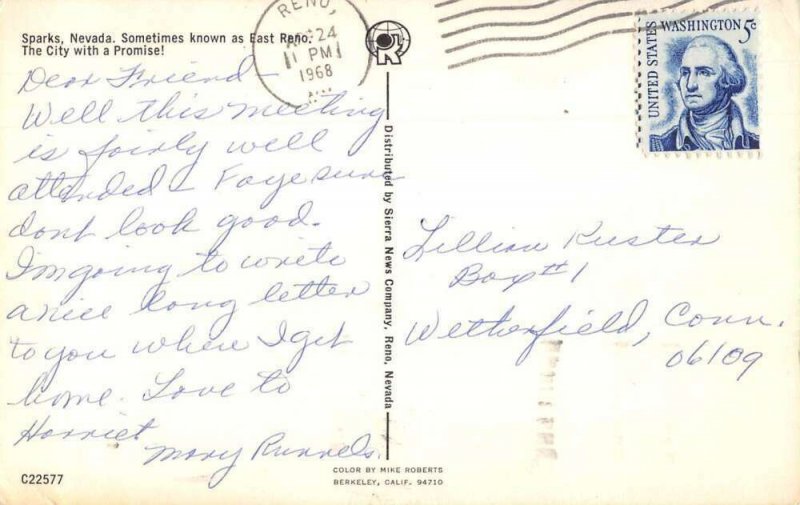 Sparks, Nevada. Sometimes known as East Reno.
The City with a Promise!
RENO,
24
1 PM
1968
UNITED STATES
WASHINGTON 5¢
Dear Friend -
Well this meeting
is fairly well
attended - Faye sure
dont look good.
I'm going to write
a nice long letter
to you when I get
home. Love to
Harriet
Mary Runnels.
Distributed by Sierra News Company, Reno, Nevada
Lillian Kuster
Box #1
Wetherfield, Conn.
06109
C22577
COLOR BY MIKE ROBERTS
BERKELEY, CALIF. 94710